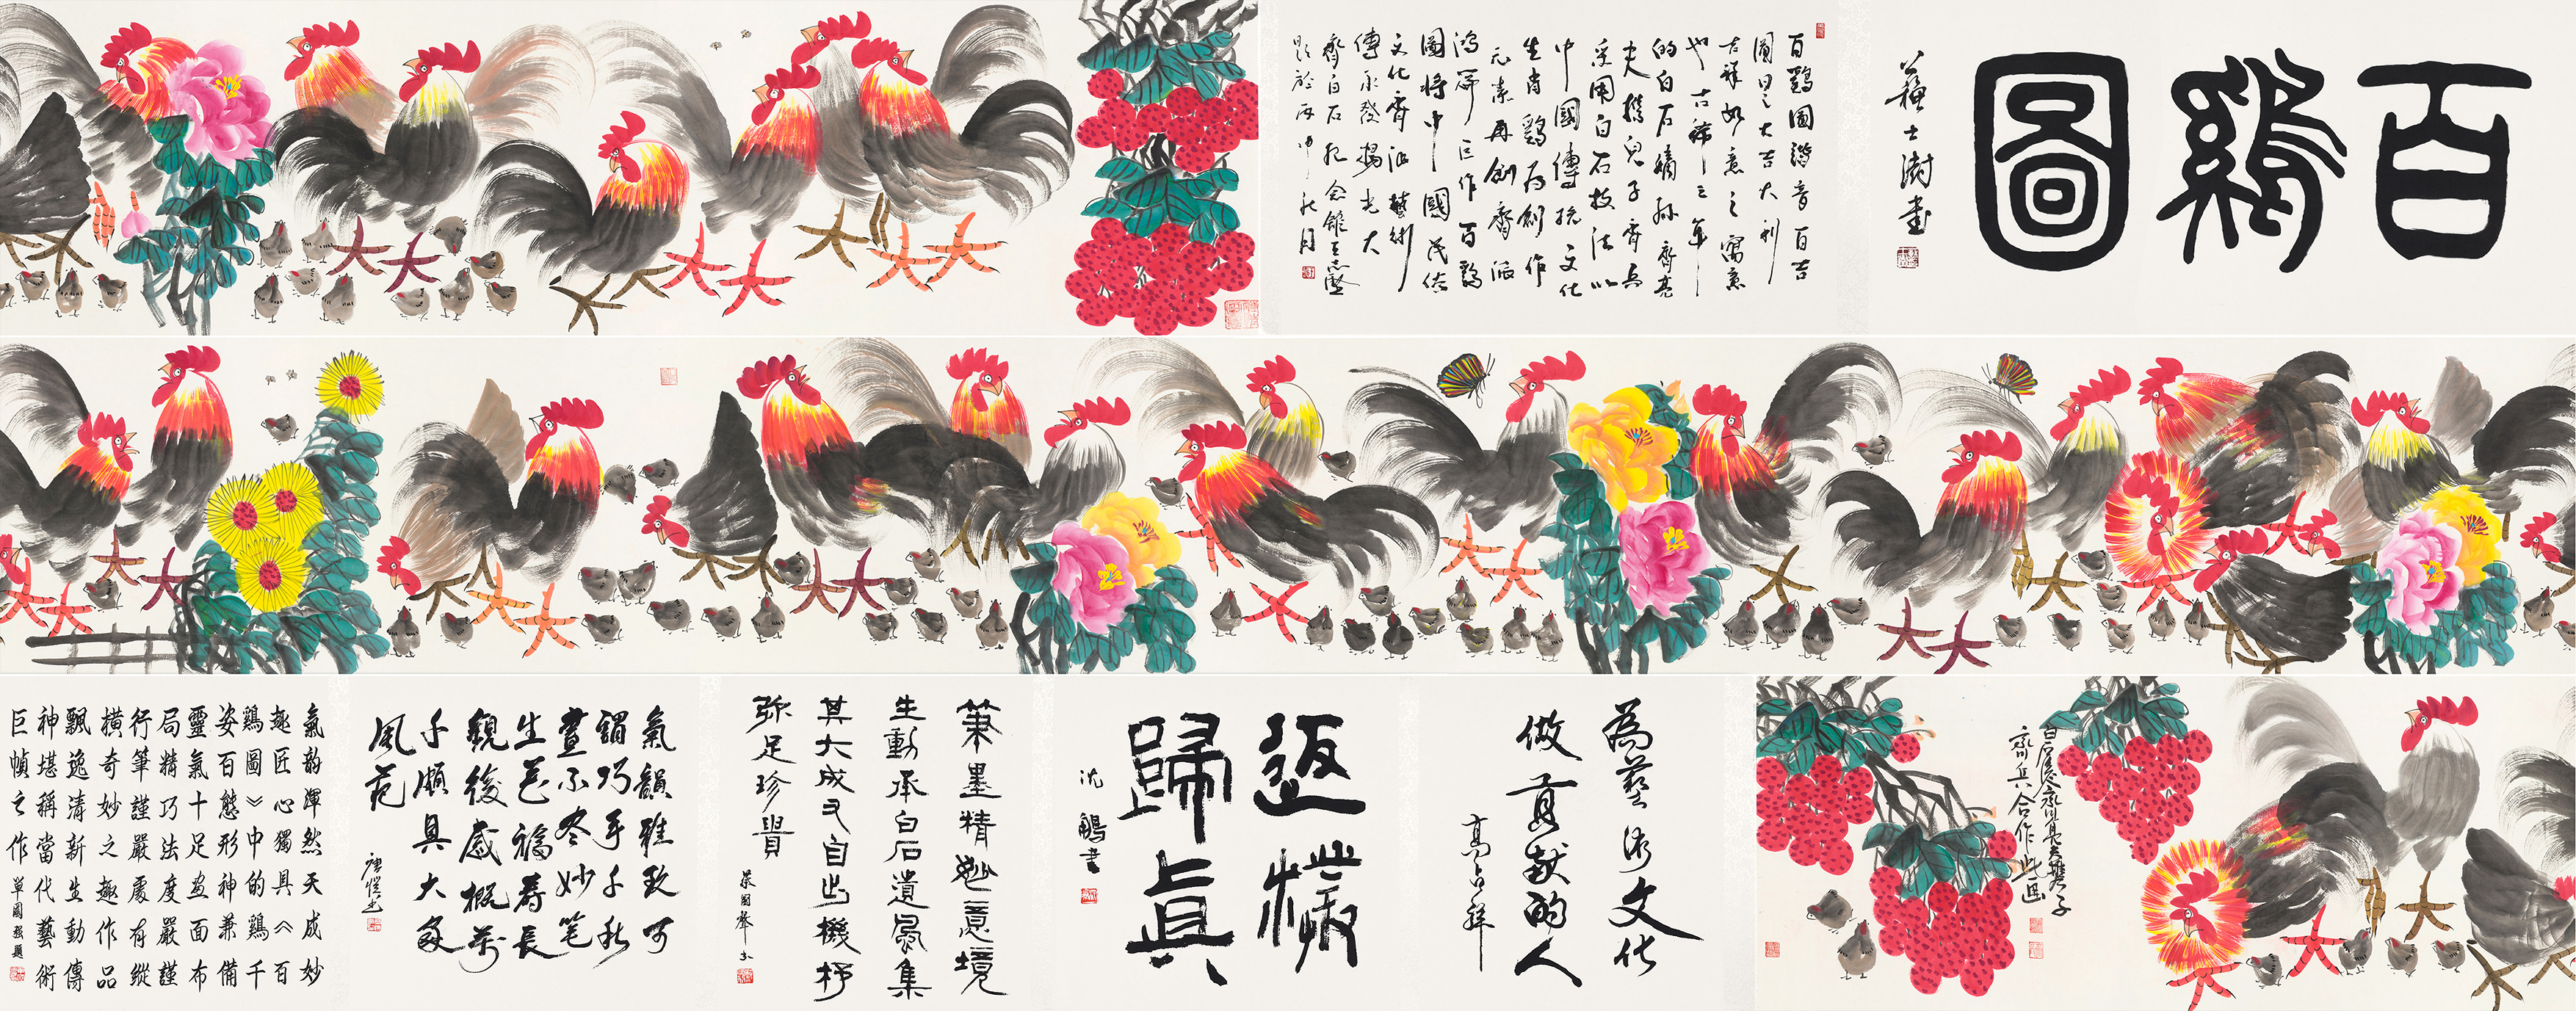 百鷄圖
蘇士澍書
百鷄圖諧音百吉
圖曰之大吉大利
吉祥如意之寓意
也古稀之年
的白石嫡孫齊亮
夫携兒子齊兵
采用白石技法以
中國傳統文化
生肖鷄为創作
元素再創齊派
鴻篇巨作百鷄
圖將中國民俗
文化齊派藝術
傳承發揚光大
齊白石紀念館王志堅
題於丙申秋月
白石後人齊亮夫携子
齊兵合作此画
為藝術文化
做貢献的人
高占祥
返樸
歸真
沈鵬書
筆墨精妙意境
生動承白石遺風集
其大成又自出機杼
弥足珍貴
氣韻雅致可
謂巧手千秋
畫不冬妙笔
生花福壽長
觀後感概萬
千頗具大家
風范
氣韵渾然天成妙
趣匠心獨具《百
鷄圖》中的鷄千
姿百態形神兼備
靈氣十足畫面布
局精巧法度嚴謹
行筆謹嚴處有縱
横奇妙之趣作品
飄逸清新生動傳
神堪稱當代藝術
巨幀之作
單國强題